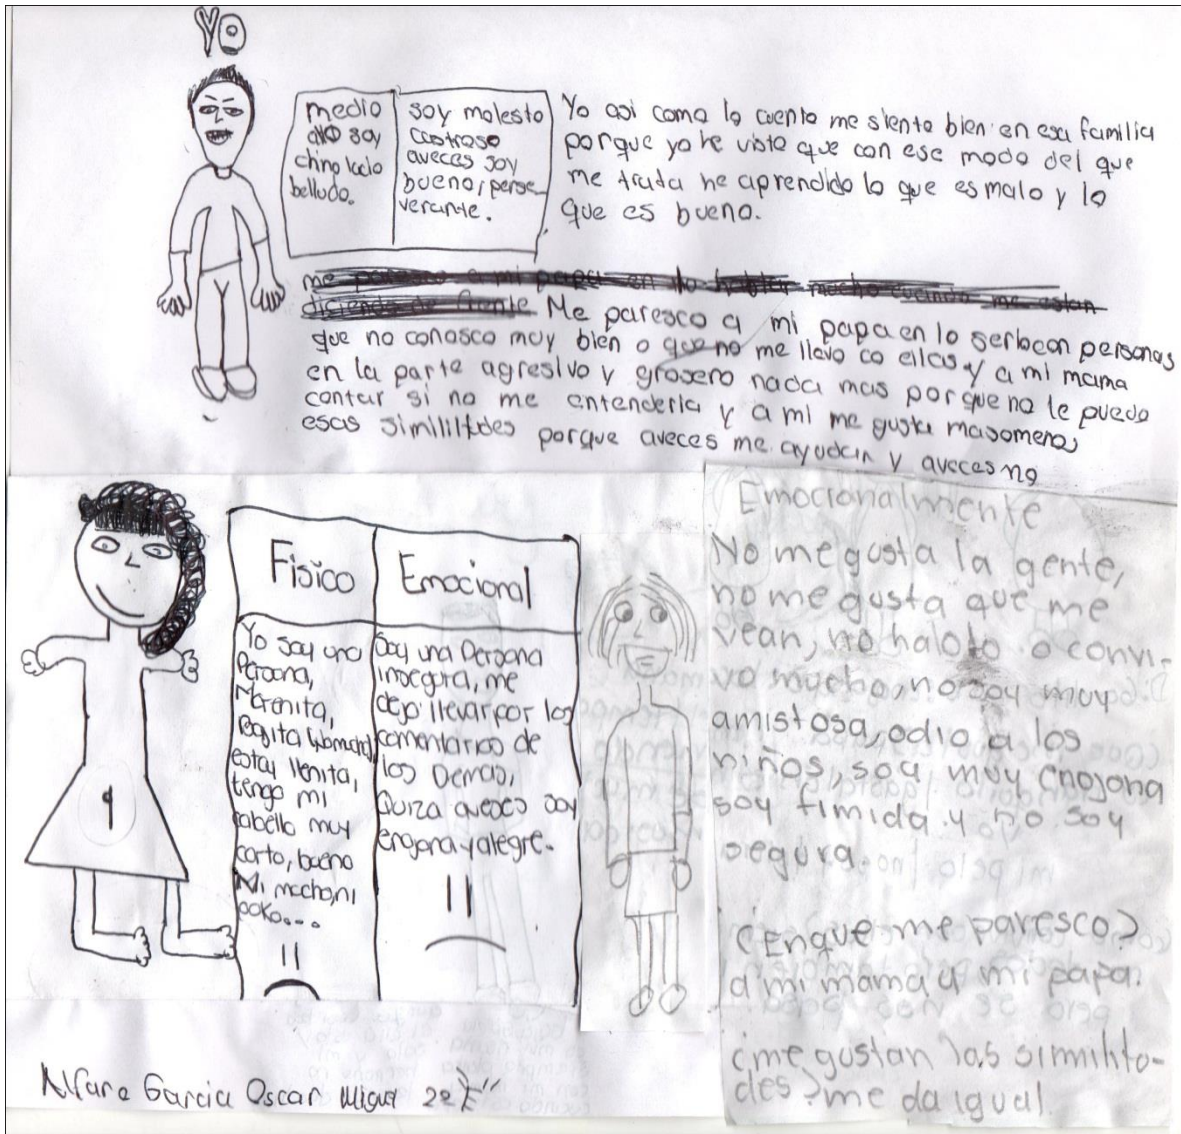 YO
medio
alto soy
chino lacio
belludo.
soy molesto
castroso
aveces soy
bueno, perse-
verante.
Yo asi como lo cuento me siento bien en esa familia
porque yo he visto que con ese modo del que
me trata he aprendido lo que es malo y lo
que es bueno.
me paresco a mi papa en no hablar mucho cuando me estan
diciendo de frente Me paresco a mi papa en lo serio con personas
que no conosco muy bien o que no me llevo co ellas y a mi mama
en la parte agresivo y grosero nada mas porque no le puedo
contar si no me entenderia y a mi me gusta masomenos
esas similitudes porque aveces me ayudan y aveces no
Fisico
Emocional
Yo soy una
Persona,
Morenita,
estoy llenita,
tengo mi
cabello muy
corto, bueno
Ni mucho, ni
poko....
Soy una Persona
insegura, me
dejo llevar por los
comentarios de
los Demas,
Quiza aveces soy
enojona y alegre.
Emocionalmente
No me gusta la gente,
no me gusta que me
vean, no hablo o convi-
vo mucho, no soy muy
amistosa, odio a los
niños, soy muy enojona
soy timida y no soy
segura.
¿En que me paresco?
a mi mama y mi papa.
¿me gustan las similito-
des? me da igual.
Alfaro Garcia Oscar Miguel 2º E"